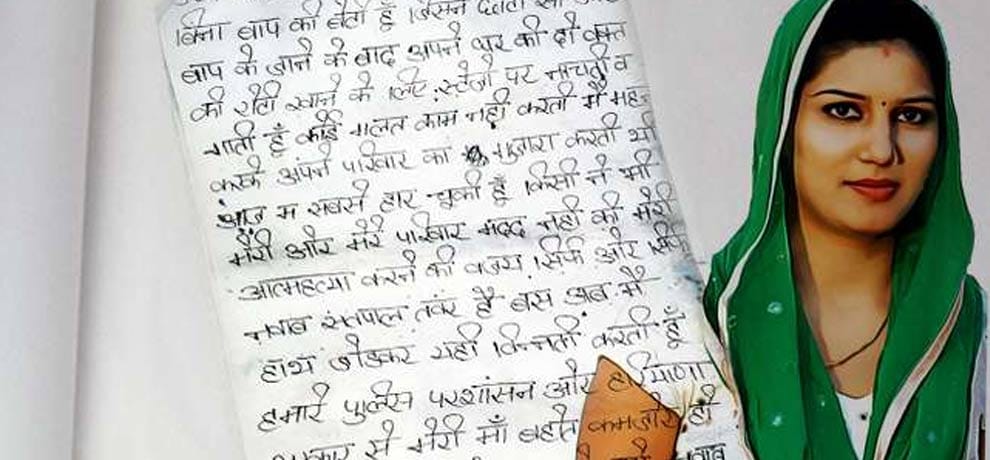 बिना बाप की बेटी हूँ जिसने
बाप के जाने के बाद अपने घर की दो वक्त
की रोटी खाने के लिए स्टेजो पर नाचती व
गाती हूँ कोई गलत काम नही करती मैं
करके अपने परिवार का गुजारा करती थी
आज म सबसे हार चुकी हूँ किसी ने भी
मेरी और मेरे परिवार मदद नही की मेरी
आत्महत्या करने की वजय सिर्फ और सिर्फ
नवाब सतपाल तवंर है बस अब मै
हाथ जोडकर यही विन्नती करती हूँ
हमारे पुलिस परशांसन और हरियाणा
से मेरी माँ बहोत कमजोर हो